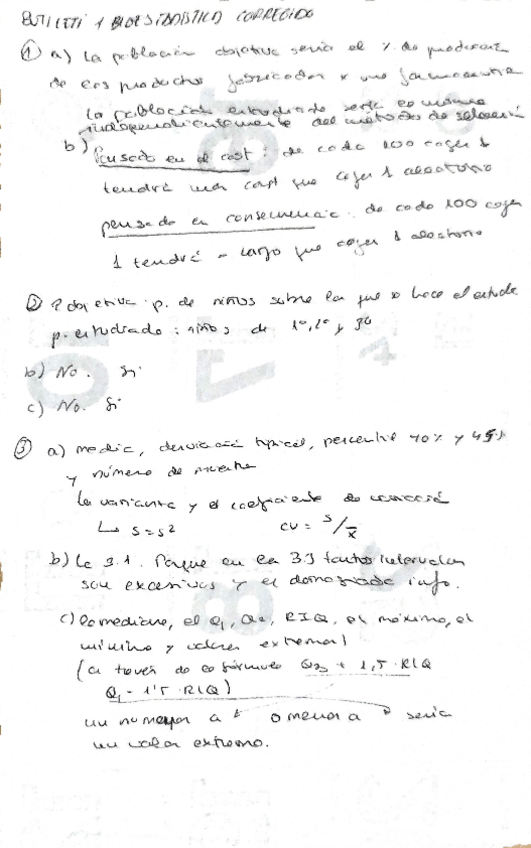 BUTLLETÍ 1 BIOESTADÍSTICA CORREGIDO
① a) la población objetivo seria el % de
de los productos fabricados x una
la población estudiada seria la misma
independientemente del método de selección
b) Pensado en el cost : de cada 100 coger 1
tendrá que coger 1 aleatorio
pensado en : de cada 100 coger
1 tendrá que coger 1 aleatorio
② P objetivo p. de niños sobre la que se hace el estudio
p. estudiada : niños de 1º, 2º y 3º
b) No. Si
c) No. Si
③ a) media, desviación típica, percentil 40% y
y número de muestra
la varianza y el coeficiente de
↳ S = S² CV = S/x̄
b) La 3.1. Porque en la 3.3 tantos intervalos
son excesivos y da demasiada info.
c) la mediana, el Q₁, Q₃, RIQ, el máximo, el
mínimo y valores extremos
(a través de la fórmula Q₃ + 1,5 · RIQ
Q₁ - 1'5 · RIQ)
un nº mayor a o menor a seria
un valor extremo.